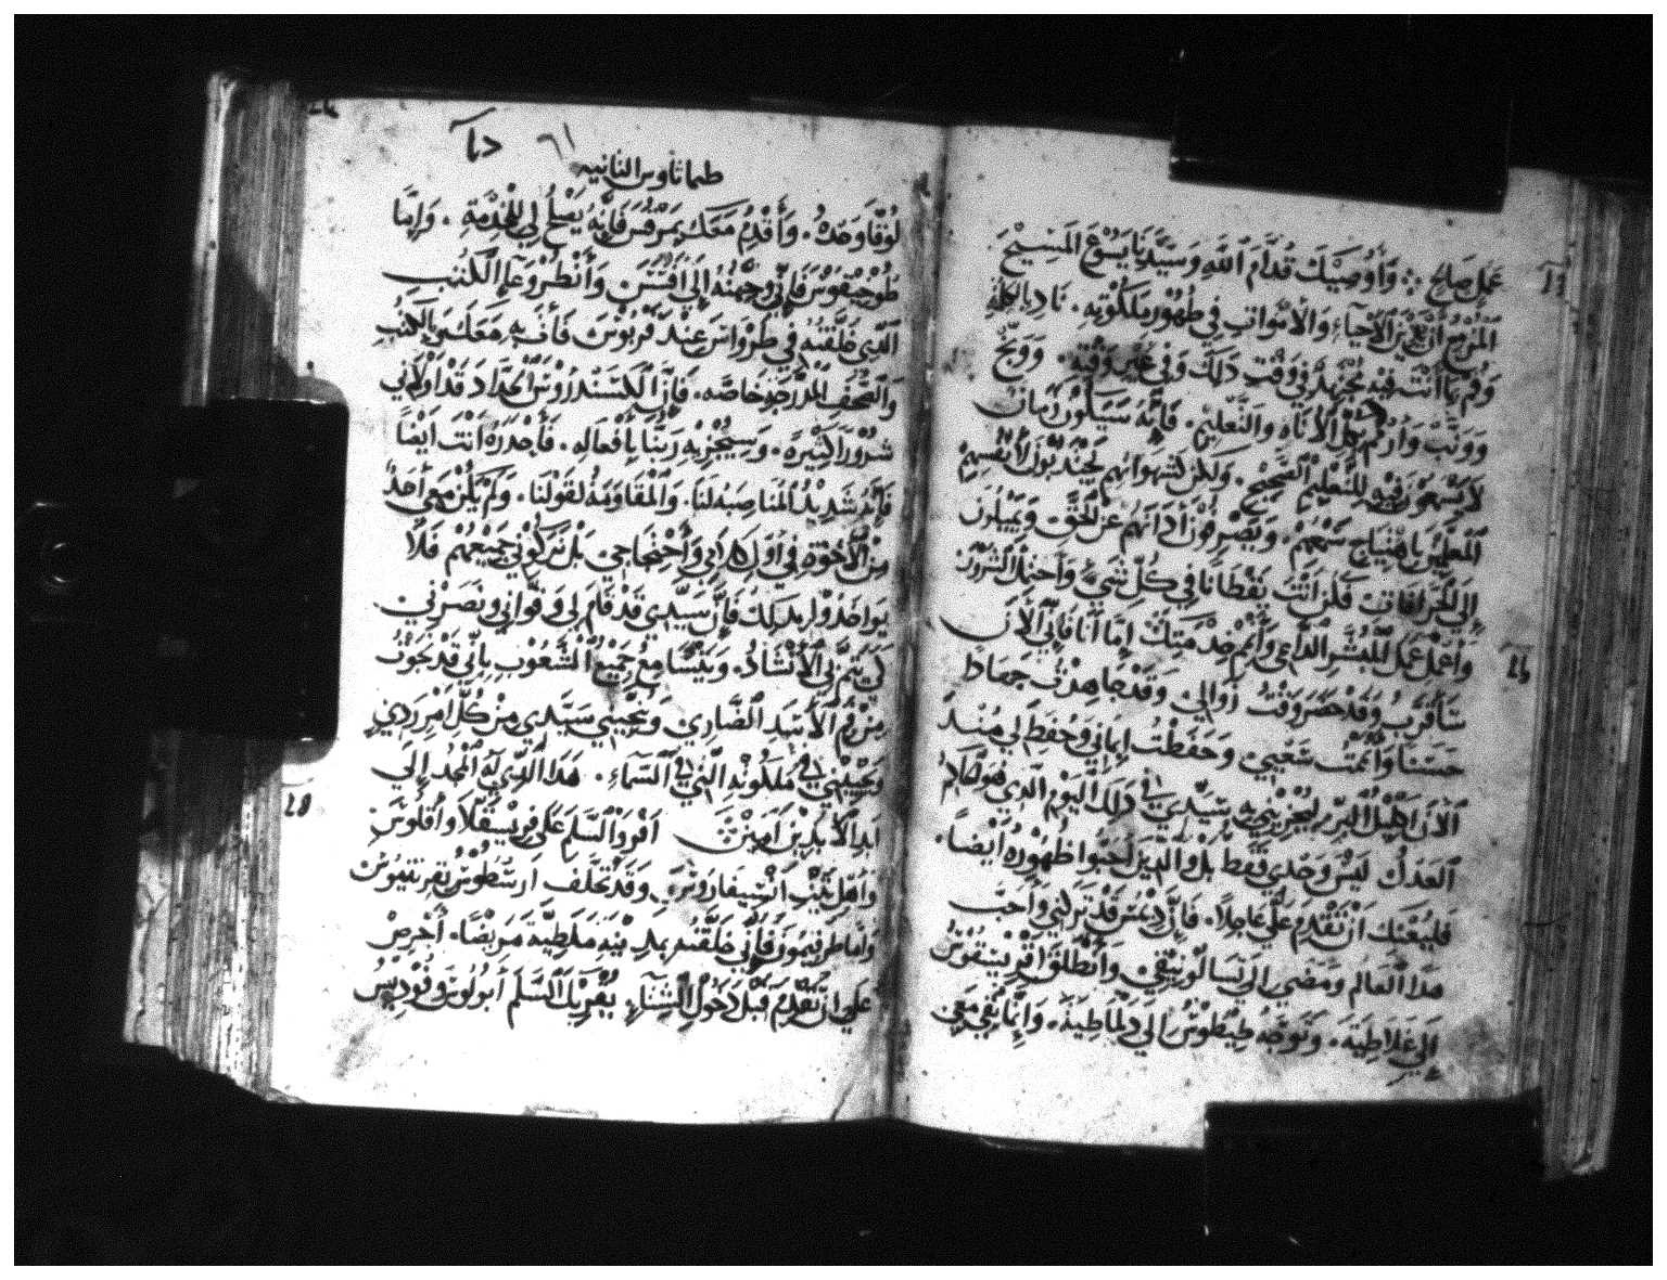 عَمَل صَالِح ؞ وَأُوصِيَّك قُدَّام اَللهِ وَسَيِّدِنَا يَسُوْعَ اَلمَسِيْحَ
اَلْمُزْمِعُ أَنْ يُدَيِّنُ اَلأَحِيَاءَ وَالأَمْوَات فِي ظُهُوْر مَلَكُوْتِهِ . نَادِ بِالكَلِمَهِ
وَقُم بِمَا أَنْتَ فِيْهِ مُجْتَهِدًا فِي وَقْتِ ذَلِكَ وَفِي غَيْر وَقْتِهِ . وَوَبِّخْ
وَوَنِّبْ وَالأَنَاه وَالتَّعْلِيْم . فَإِنَّهُ سَيَكُوْنُ زَمَانٌ
لَا يَسْمَعُوْنَ فِيْهِ لِلتَّعْلِيْم اَلصَّحِيْح . وَلكِن كَشَهْوَاتِهِم يَجْتَذِبُوْنَ لأَنْفُسِهِمْ
اَلْمُعَلِّمِيْنَ بِاهْتِيَاجِ سَمْعِهِمْ . وَيَصْرِفُوْنَ أَذَانَهُم عَن اَلحَقِّ وَيَمِيْلُوْنَ
إِلَى الخُرَافَاتِ فَكُن أَنْتَ يَقْظَانًا فِي كُلِّ شَيءٍ وَاَحْتَمِل اَلشُّرُوْرَ
وَاَعْمَل عَمَل اَلْمُبَشِّر اَلدَّاعِي وَأَتْمِمْ خِدْمَتِكَ إِمَّا أَنَا فَإِنِّي اَلآَن
سَأَقْرَبُ وَقَدْ حَضَرَ وَقْتُ زَوَالِي وَقَدْ جَاهَدْتُ جِهَادًا
حَسَنًا وَأَتْمَمْتُ سَعْيِي وَحَفَظْتُ إِيمَانِي وَحُفِظَ لِي مُنْذُ
اَلأَن إِكْلِيْلُ اَلبِرِّ يُجْزِيْنِي بِهِ سَيِّدِي فِي ذَلِكَ اَليَوْم اَلَّذِي هُوَ اَلحَاكِمُ
اَلعَدْلُ لَيْسَ وَحْدِي فَقَط بَلْ وَالَّذِيْنَ أَحَبُّوا ظُهُوْرِهِ أَيْضًا .
فَلْيَعْنِكَ أَنْ تَقْدِمَ عَلَيَّ عَاجِلًا . فَإِنَّ دِيْمَس قَدْ تَرَكَنِي وَأَحَبَّ
هَذَا اَلْعَالَم وَمَضَى إِلَى تَسَالُوْنِيْقِي . وَأَنْطَلَقَ اَقْرِيْسْقُوْسُ
إِلَى غَلَاطِيَةَ . وَتَوَجَّهُ طِيْطُوْسُ إِلَى دَلْمَاطِيَةَ . وَإِنَّمَا بَقِيَ مَعِي
طيماثاوس الثانيه
لُوْقَا وَحْدَهُ . وَأَقْدِمُ مَعَكَ بِمَرْقُسَ فَإِنَّهُ يَصْلُحُ لِي لِلْخِدْمَةِ . وَإِمَّا
طُوْخِيْقُوْسَ فَإِنِّي وَجَّهْتُهُ إِلَى أَفَسُسَ وَأَنْظُرْ وَعَاءَ الكُتُبِ
اَلَّذِي خَلَّفْتُهُ فِي طَرْوَاس عِنْدَ قَرْبُوْسَ فَأْتِ بِهِ مَعَكَ بِالكُتُبِ
وَالصُّحُفِ اَلْمُدْرَجَه خَاصَّه . فَإِنَّ اَلَكْسَنْدْرُوْسَ اَلحَدَّاد قَدْ أَوْلَانِي
شُرُوْرًا كَثِيْرَةً . وَسَيُجْزِيْهِ رَبُّنَا بِأَفْعَالِه . فَأَحْذَرَهُ أَنْتَ أَيْضًا
فَإِنَّهُ شَدِيْدُ اَلْمُنَاصَبَه لَنَا . وَالْمُقَاوَمَةُ لِقَوْلِنَا . وَلَمْ يَكُنْ مَعِي أَحَدٌ
مِنَ اَلأَخْوَةِ فِي أَوَّل وَأَحْتِجَاجِي . بَلْ تَرَكُوْنِي جَمِيْعُهُمْ فَلَا
يُوَاخَذُوْا بِذَلِكَ فَإِنَّ سَيِّدِي قَدْ قَامَ لِي وَقَوَّانِي وَنَصَرَنِي
كَي يَتِمَّ لِي اَلأَنْشَادُ . وَيَتَسَامِعُ جَمِيْعُ اَلشُّعُوْبِ بِأَنِّي قَدْ نَجَوْتُ
مِنْ فَمِ الأَسَدِ اَلضَّارِي وَيُنْجِيْنِي سَيِّدِي مِنْ كُلِّ أَمْرٍ رَدِيٍّ
وَيُحْيِيْنِي فِي مَلَكُوْتِهِ اَلَّتِي فِي اَلسَّمَاءِ . هَذَا اَلَّذِي لَهُ اَلْمَجْدُ إِلَى
أَبَدِ اَلأَبِدِيْنَ آمِيْنَ ؞ أَقْرِ اَلسَّلَمِ عَلَى فِرِيْسْقِلَّا وَأَقْلُوْسَ
وَأَهْلِ بَيْتِ أَنْسِيْفَارُوْسَ وَقَدْ تَخَلَّف أَرَسْطُوْسُ بِقِرِنْتِيُوْسَ
وَأَمَّا طَرَفِيْمُوْنَ فَإِنِّي خَلَّفْتُهُ بِمَدِيْنَةِ مَلِطِيَّةَ مَرِيْضًا . أَحْرِصْ
عَلَى أَنْ تَقْدِمَ قَبْلَ دُخُوْلِ اَلشِّتَاءِ يُقْرِيْكَ اَلسَّلَمَ أَبُوْلُوْسَ وَفُوْدِيْسُ